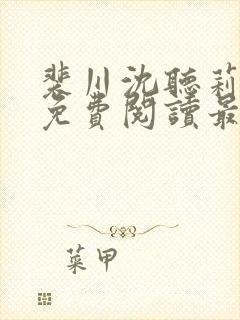 裴川沈聽莉
免費閱讀最
菜甲